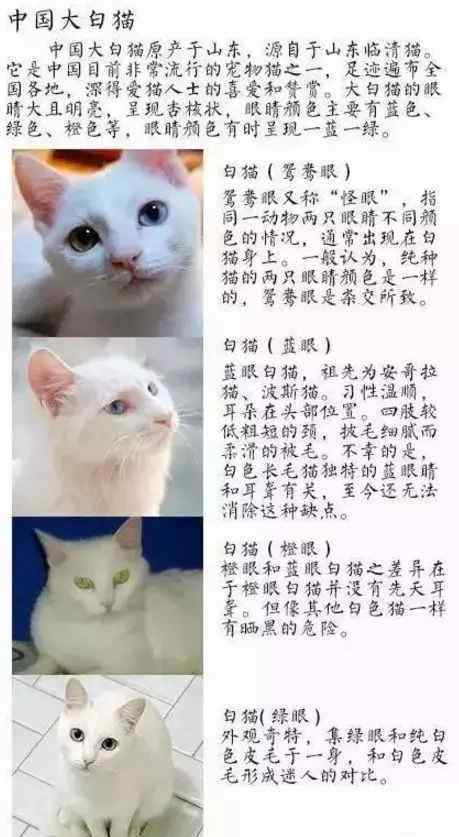 中国大白猫
中国大白猫原产于山东，源自于山东临清猫。
它是中国目前非常流行的宠物猫之一，足迹遍布全
国各地，深得爱猫人士的喜爱和赞赏。大白猫的眼
睛大且明亮，呈现杏核状，眼睛颜色主要有蓝色、
绿色、橙色等，眼睛颜色有时呈现一蓝一绿。
白猫（鸳鸯眼）
鸳鸯眼又称“怪眼”，指
同一动物两只眼睛不同颜
色的情况，通常出现在白
猫身上。一般认为，纯种
猫的两只眼睛颜色是一样
的，鸳鸯眼是杂交所致。
白猫（蓝眼）
蓝眼白猫，祖先为安哥拉
猫、波斯猫。习性温顺，
耳朵在头部位置。四肢较
低粗短的颈，披毛细腻而
柔滑的被毛。不幸的是，
白色长毛猫独特的蓝眼睛
和耳聋有关，至今还无法
消除这种缺点。
白猫（橙眼）
橙眼和蓝眼白猫之差异在
于橙眼白猫并没有先天耳
聋。但像其他白色猫一样
有晒黑的危险。
白猫(绿眼）
外观奇特，集绿眼和纯白
色皮毛于一身，和白色皮
毛形成迷人的对比。